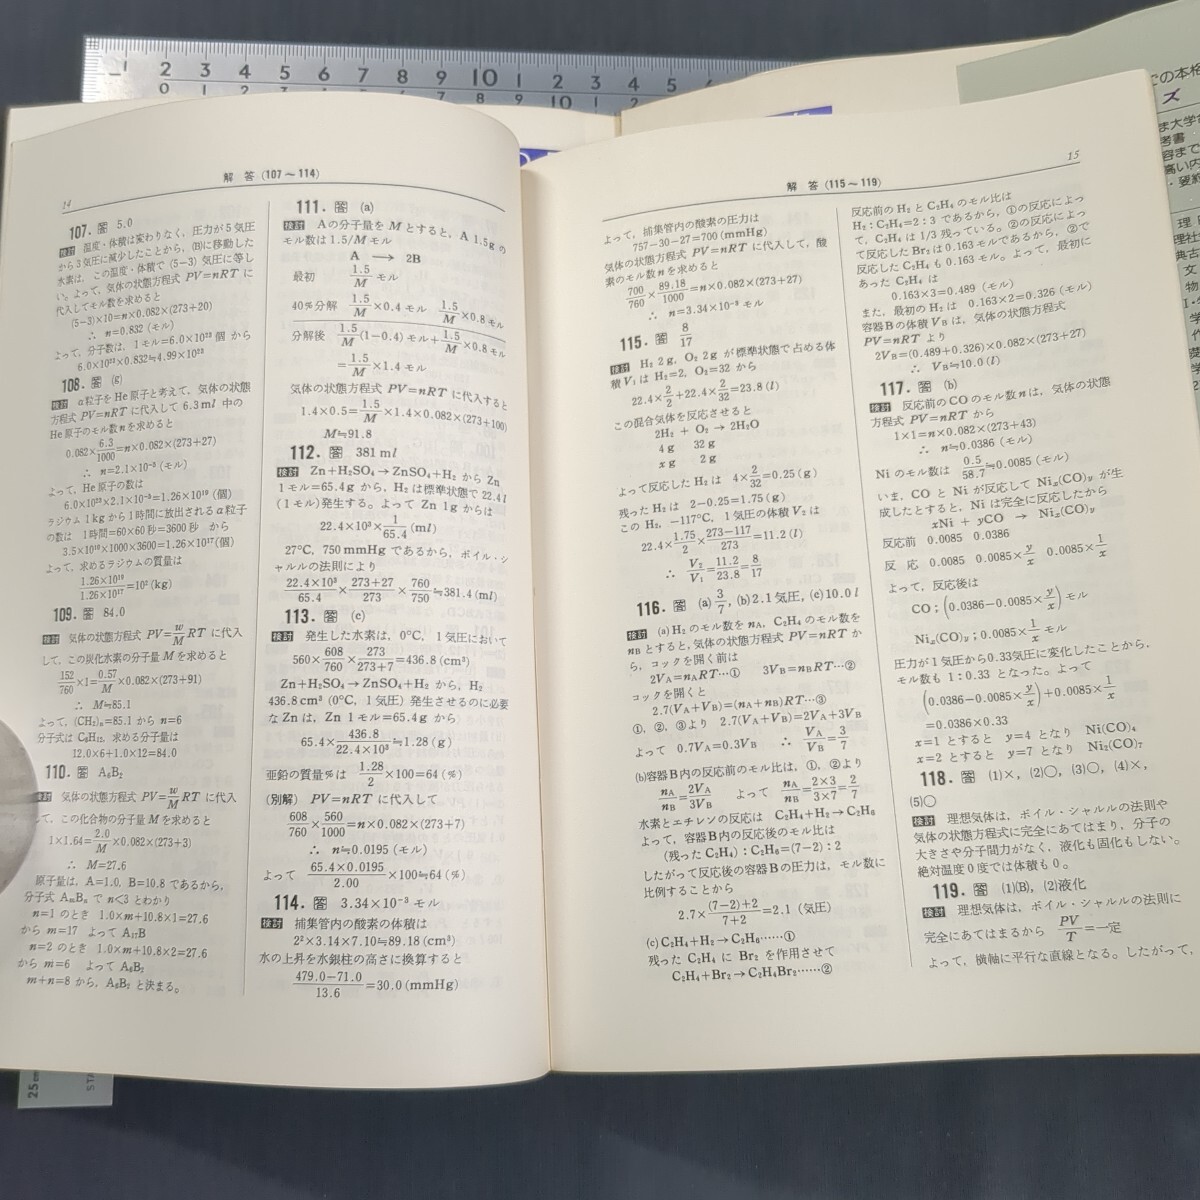 14
解 答 (107〜114)
107. 答 5.0
検討 温度・体積は変わりなく，圧力が5気圧
から3気圧に減少したことから，(B)に移動した
水素は，この温度・体積で (5−3) 気圧に等し
い。よって，気体の状態方程式 PV=nRT に
代入してモル数を求めると
(5−3)×10=n×0.082×(273+20)
∴ n=0.832 (モル)
よって，分子数は，1モル=6.0×10²³個 から
6.0×10²³×0.832≒4.99×10²³
108. 答 (g)
検討 α粒子を He 原子と考えて，気体の状態
方程式 PV=nRT に代入して 6.3 ml 中の
He 原子のモル数 n を求めると
0.082×6.3/1000=n×0.082×(273+27)
∴ n=2.1×10⁻⁵ (モル)
よって，He 原子の数は
6.0×10²³×2.1×10⁻⁵=1.26×10¹⁹ (個)
ラジウム 1kg から1時間に放出されるα粒子
の数は 1時間=60×60秒=3600秒 から
3.5×10¹⁰×1000×3600=1.26×10¹⁷(個)
よって，求めるラジウムの質量は
1.26×10¹⁹/1.26×10¹⁷=10² (kg)
109. 答 84.0
検討 気体の状態方程式 PV=w/M RT に代入
して，この炭化水素の分子量 M を求めると
152/760×1=0.57/M×0.082×(273+91)
∴ M≒85.1
よって，(CH₂)ₙ=85.1 から n=6
分子式は C₆H₁₂，求める分子量は
12.0×6+1.0×12=84.0
110. 答 A₆B₂
検討 気体の状態方程式 PV=w/M RT に代入
して，この化合物の分子量 M を求めると
1×1.64=2.0/M×0.082×(273+3)
∴ M=27.6
原子量は，A=1.0，B=10.8 であるから，
分子式 AₘBₙ で n<3 とわかり
n=1 のとき 1.0×m+10.8×1=27.6
から m=17 よって A₁₇B
n=2 のとき 1.0×m+10.8×2=27.6
から m=6 よって A₆B₂
m+n=8 から，A₆B₂ と決まる。
111. 答 (a)
検討 A の分子量を M とすると，A 1.5g の
モル数は 1.5/M モル
A → 2B
最初 1.5/M モル
40%分解 1.5/M×0.4 モル 1.5/M×0.8 モル
分解後 1.5/M(1−0.4) モル+1.5/M×0.8 モル
=1.5/M×1.4 モル
気体の状態方程式 PV=nRT に代入すると
1.4×0.5=1.5/M×1.4×0.082×(273+100)
M≒91.8
112. 答 381 ml
検討 Zn+H₂SO₄→ZnSO₄+H₂ から Zn
1モル=65.4g から，H₂ は標準状態で 22.4 l
(1モル) 発生する。よって Zn 1g からは
22.4×10³×1/65.4 (ml)
27°C，750 mmHg であるから，ボイル・シ
ャルルの法則により
22.4×10³/65.4×273+27/273×760/750≒381.4 (ml)
113. 答 (e)
検討 発生した水素は，0°C，1気圧において
560×608/760×273/273+7=436.8 (cm³)
Zn+H₂SO₄→ZnSO₄+H₂ から，H₂
436.8 cm³ (0°C，1気圧) 発生させるのに必要
な Zn は，Zn 1モル=65.4g から
65.4×436.8/22.4×10³≒1.28 (g)
亜鉛の質量%は 1.28/2×100=64 (%)
(別解) PV=nRT に代入して
608/760×560/1000=n×0.082×(273+7)
∴ n≒0.0195 (モル)
よって 65.4×0.0195/2.00×100≒64 (%)
114. 答 3.34×10⁻² モル
検討 捕集管内の酸素の体積は
2²×3.14×7.10≒89.18 (cm³)
水の上昇を水銀柱の高さに換算すると
479.0−71.0/13.6=30.0 (mmHg)
解 答 (115〜119)
15
よって，捕集管内の酸素の圧力は
757−30−27=700 (mmHg)
気体の状態方程式 PV=nRT に代入して，酸
素のモル数 n を求めると
700/760×89.18/1000=n×0.082×(273+27)
∴ n=3.34×10⁻³ モル
115. 答 8/17
検討 H₂ 2g，O₂ 2g が標準状態で占める体
積 V₁ は H₂=2，O₂=32 から
22.4×2/2+22.4×2/32=23.8 (l)
この混合気体を反応させると
2H₂ + O₂ → 2H₂O
4g 32g
xg 2g
よって反応した H₂ は 4×2/32=0.25 (g)
残った H₂ は 2−0.25=1.75 (g)
この H₂，−117°C，1気圧の体積 V₂ は
22.4×1.75/2×273−117/273=11.2 (l)
∴ V₂/V₁=11.2/23.8=8/17
116. 答 (a) 3/7，(b) 2.1気圧，(c) 10.0 l
検討 (a) H₂ のモル数を nA，C₂H₄ のモル数を
nB とすると，気体の状態方程式 PV=nRT か
ら，コックを開く前は
2VA=nART…① 3VB=nBRT…②
コックを開くと
2.7(VA+VB)=(nA+nB)RT…③
①，②，③より 2.7(VA+VB)=2VA+3VB
よって 0.7VA=0.3VB ∴ VA/VB=3/7
(b) 容器B内の反応前のモル比は，①，②より
nA/nB=2VA/3VB よって nA/nB=2×3/3×7=2/7
水素とエチレンの反応は C₂H₄+H₂→C₂H₆
よって，容器B内の反応後のモル比は
(残った C₂H₄) : C₂H₆=(7−2) : 2
したがって反応後の容器Bの圧力は，モル数に
比例することから
2.7×(7−2)+2/7+2=2.1 (気圧)
(c) C₂H₄+H₂→C₂H₆……①
残った C₂H₄ に Br₂ を作用させて
C₂H₄+Br₂→C₂H₄Br₂……②
反応前の H₂ と C₂H₄ のモル比は
H₂ : C₂H₄=2 : 3 であるから，①の反応によっ
て，C₂H₄ は 1/3 残っている。②の反応によっ
て反応した Br₂ は 0.163 モルであるから，②で
反応した C₂H₄ も 0.163 モル。よって，最初に
あった C₂H₄ は
0.163×3=0.489 (モル)
また，最初の H₂ は 0.163×2=0.326 (モル)
容器Bの体積 VB は，気体の状態方程式
PV=nRT より
2VB=(0.489+0.326)×0.082×(273+27)
∴ VB≒10.0 (l)
117. 答 (b)
検討 反応前の CO のモル数 n は，気体の状態
方程式 PV=nRT から
1×1=n×0.082×(273+43)
∴ n≒0.0386 (モル)
Ni のモル数は 0.5/58.7≒0.0085 (モル)
いま，CO と Ni が反応して Niₓ(CO)y が生
成したとすると，Ni は完全に反応したから
xNi + yCO → Niₓ(CO)y
反応前 0.0085 0.0386
反 応 0.0085 0.0085×y/x 0.0085×1/x
よって，反応後は
CO ; (0.0386−0.0085×y/x) モル
Niₓ(CO)y ; 0.0085×1/x モル
圧力が1気圧から0.33気圧に変化したことから，
モル数も 1 : 0.33 となった。よって
(0.0386−0.0085×y/x)+0.0085×1/x
=0.0386×0.33
x=1 とすると y=4 となり Ni(CO)₄
x=2 とすると y=7 となり Ni₂(CO)₇
118. 答 (1)×，(2)○，(3)○，(4)×，
(5)○
検討 理想気体は，ボイル・シャルルの法則や
気体の状態方程式に完全にあてはまり，分子の
大きさや分子間力がなく，液化も固化もしない。
絶対温度0度では体積も0。
119. 答 (1)(B)，(2)液化
検討 理想気体は，ボイル・シャルルの法則に
完全にあてはまるから PV/T=一定
よって，横軸に平行な直線となる。したがって，
1 2 3 4 5 6 7 8 9 10 1 2 3 4 5 6
0 1 2
での本格
ズ
考書
高い内
理
文
物
学
25